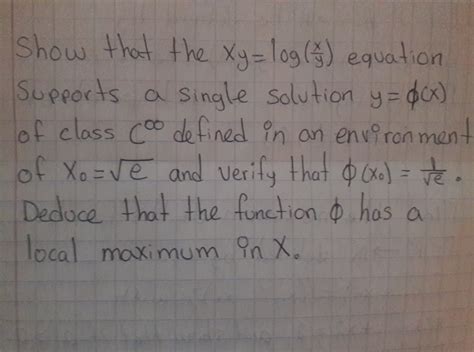 Show that the xy=log(x/y) equation
Supports a single solution y=ϕ(x)
of class C^∞ defined in an environment
of x₀=√e and verify that ϕ(x₀) = 1/√e.
Deduce that the function ϕ has a
local maximum in X.